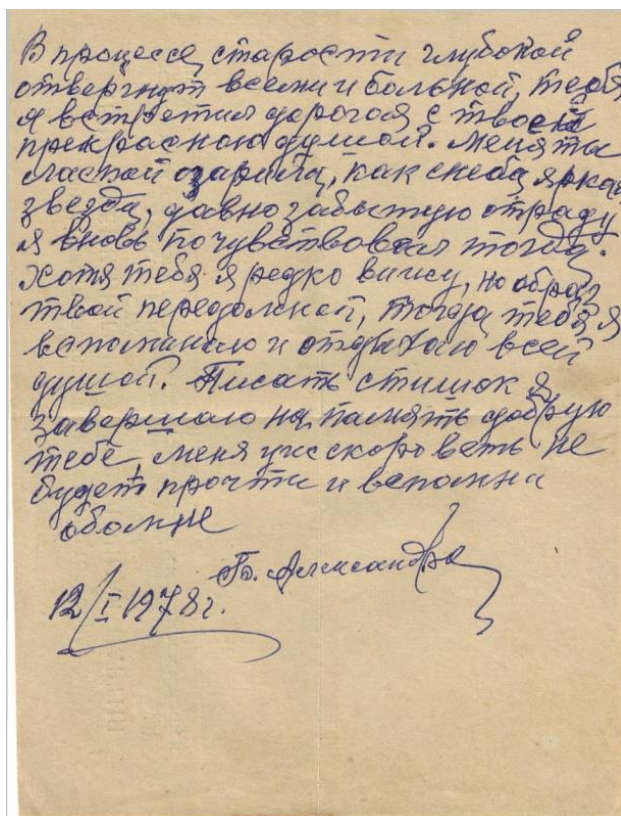 В процессе, старости глубокой
отвергнут всеми и больной, тебя
я встретил дорогая с твоей
прекрасною душой. Меня ты
ласкай озарила, как с неба яркая
звезда, давно забытую отраду
я вновь почувствовал тогда.
Хотя тебя я редко вижу, но образ
твой передомной, тогда тебя я
вспоминаю и отдыхаю всей
душой. Писать стишок я
завершаю на память добрую
тебе, меня уж скоро ведь не
будет, прочти и вспомни
обомне
12/I 1978 г.